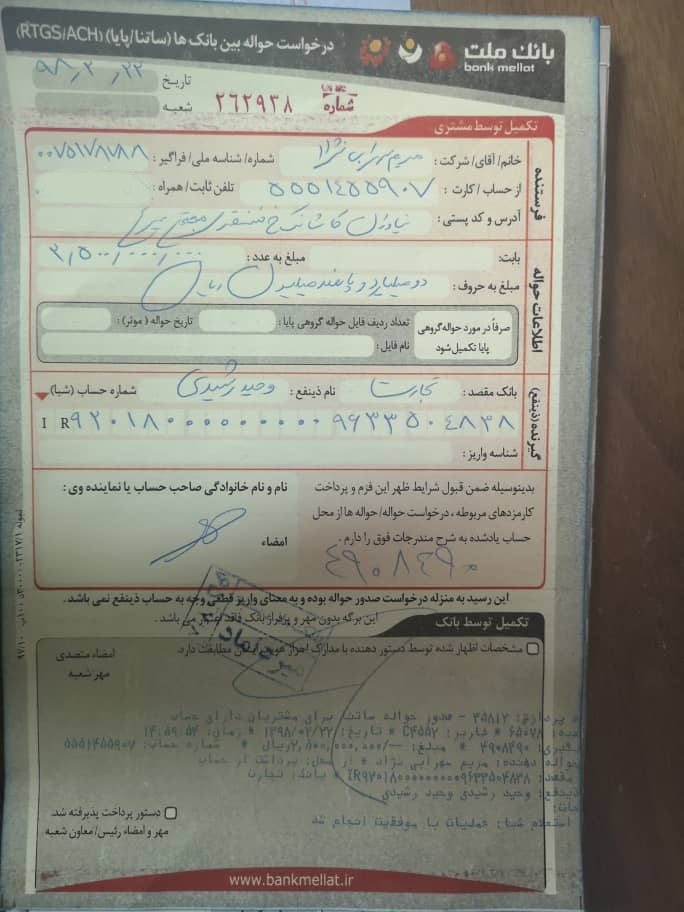 بانک ملت
bank mellat
درخواست حواله بین بانک ها (ساتنا/پایا) (RTGS/ACH)
تاریخ ۹۸٫۳٫۲۲
شماره ۲۶۲۹۳۸ شعبه
تکمیل توسط مشتری
فرستنده
خانم/ آقای/ شرکت: شماره/ شناسه ملی/ فراگیر: ۰۰۷۵۱۷۸۷۸۸
از حساب/ کارت: ۵۵۵۱۴۵۵۹۰۷ تلفن ثابت/ همراه:
آدرس و کد پستی: نیاوران کاشانک خ
اطلاعات حواله
بابت: مبلغ به عدد:
مبلغ به حروف: دو میلیارد و پانصد میلیون ریال
صرفاً در مورد حواله گروهی پایا تکمیل شود
تعداد ردیف فایل حواله گروهی پایا: تاریخ حواله (موثر):
نام فایل:
گیرنده (ذینفع)
بانک مقصد: تجارت نام ذینفع: وحید رشیدی شماره حساب (شبا)
I R ۹۲۰۱۸۰۰۰۰۰۰۰۰۰۰۹۶۳۳۵۰۴۸۳۸
شناسه واریز:
بدینوسیله ضمن قبول شرایط ظهر این فرم و پرداخت
کارمزدهای مربوطه، درخواست حواله/ حواله ها از محل
حساب یادشده به شرح مندرجات فوق را دارم.
۴۹۰۸۴۹۰
نام و نام خانوادگی صاحب حساب یا نماینده وی:
امضاء
این رسید به منزله درخواست صدور حواله بوده و به معنای واریز قطعی وجه به حساب ذینفع نمی باشد.
این برگه بدون مهر و پرفراژ بانک فاقد اعتبار می باشد.
تکمیل توسط بانک
مشخصات اظهار شده توسط دستور دهنده با مدارک احراز هویت ایشان مطابقت دارد.
امضاء متصدی
مهر شعبه
پردازی: ۳۵۸۱۲ - صدور حواله ساتنا برای مشتریان دارای حساب
۶۵۰۷۸ * کاربر: C۴۵۵۲ * تاریخ: ۱۳۹۸/۰۳/۲۲ * زمان: ۱۴:۵۹:۵۴
۴۹۰۸۴۹۰ * مبلغ: --/۲,۵۰۰,۰۰۰,۰۰۰ریال * شماره حساب: ۵۵۵۱۴۵۵۹۰۷
حواله دهنده: مریم سهرابی نژاد * از محل: برداشت از حساب
مقصد: IR۹۲۰۱۸۰۰۰۰۰۰۰۰۰۰۹۶۳۳۵۰۴۸۳۸ * بانک: تجارت
ذینفع: وحید رشیدی وحید رشیدی
استعلام شبا: عملیات با موفقیت انجام شد
دستور پرداخت پذیرفته شد.
مهر و امضاء رئیس/ معاون شعبه
www.bankmellat.ir